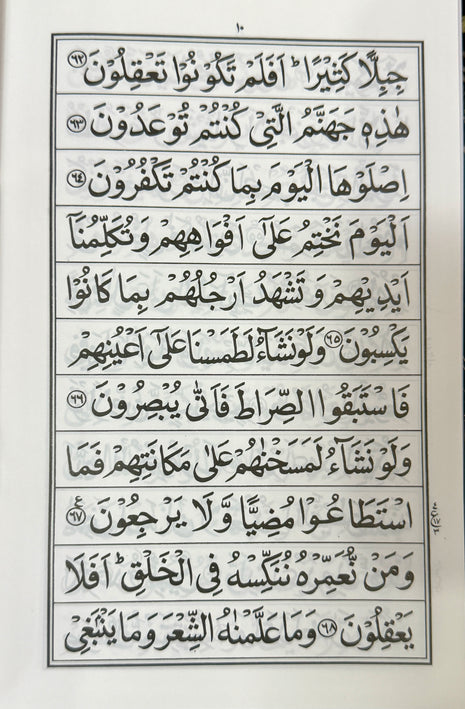 ١٠
جِبِلًّا كَثِيْرًا ؕ اَفَلَمْ تَكُوْنُوْا تَعْقِلُوْنَ ﴿۶۲﴾
هٰذِهٖ جَهَنَّمُ الَّتِيْ كُنْتُمْ تُوْعَدُوْنَ ﴿۶۳﴾
اِصْلَوْهَا الْيَوْمَ بِمَا كُنْتُمْ تَكْفُرُوْنَ ﴿۶۴﴾
اَلْيَوْمَ نَخْتِمُ عَلٰۤى اَفْوَاهِهِمْ وَتُكَلِّمُنَاۤ
اَيْدِيْهِمْ وَتَشْهَدُ اَرْجُلُهُمْ بِمَا كَانُوْا
يَكْسِبُوْنَ ﴿۶۵﴾ وَلَوْ نَشَآءُ لَطَمَسْنَا عَلٰۤى اَعْيُنِهِمْ
فَاسْتَبَقُوا الصِّرَاطَ فَاَنّٰى يُبْصِرُوْنَ ﴿۶۶﴾
وَلَوْ نَشَآءُ لَمَسَخْنٰهُمْ عَلٰى مَكَانَتِهِمْ فَمَا
اسْتَطَاعُوْا مُضِيًّا وَّلَا يَرْجِعُوْنَ ﴿۶۷﴾ ع
وَمَنْ نُّعَمِّرْهُ نُنَكِّسْهُ فِي الْخَلْقِ ؕ اَفَلَا
يَعْقِلُوْنَ ﴿۶۸﴾ وَمَا عَلَّمْنٰهُ الشِّعْرَ وَمَا يَنْۢبَغِيْ